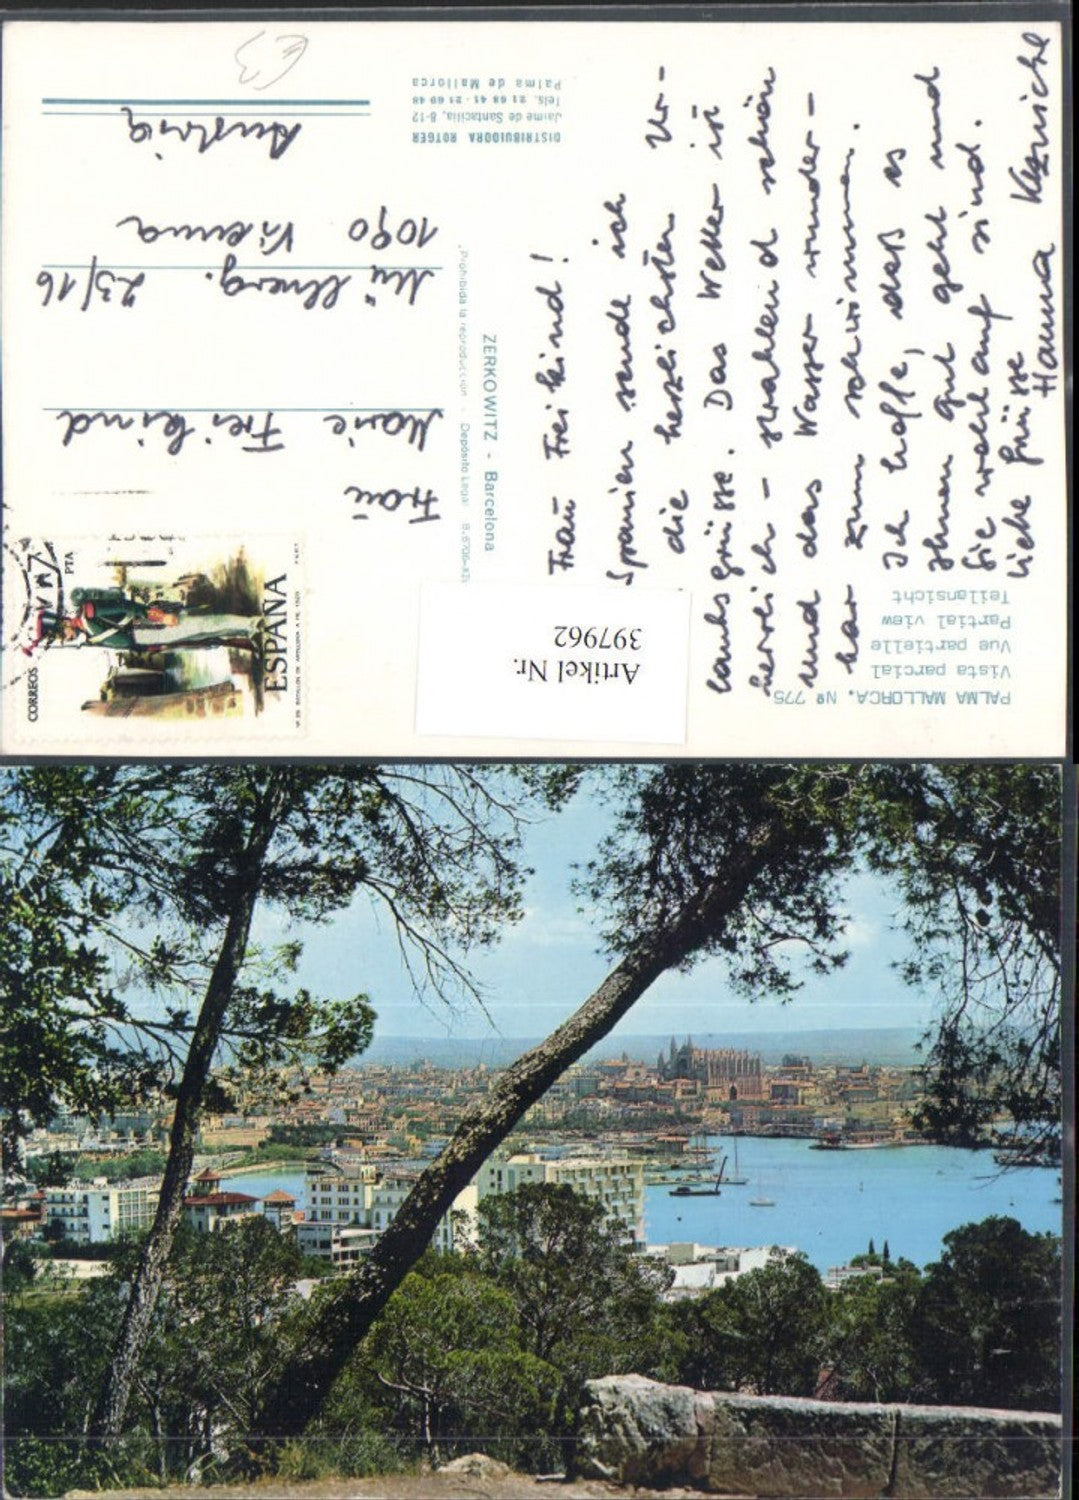 PALMA MALLORCA. Nº 775
Vista parcial
Vue partielle
Partial view
Teilansicht
Frau Freikind!
Spanien sende ich
die herzlichsten Ur-
laubsgrüsse. Das Wetter ist
herrlich - strahlend schön
und das Wasser wunder-
bar zum schwimmen.
Ich hoffe, daß es
Ihnen gut geht und
Sie wohlauf sind.
Liebe Grüsse
Hanna
Artikel Nr.
397962
ZERKOWITZ - Barcelona
Prohibida la reproducción - Depósito Legal
DISTRIBUIDORA ROTGER
Jaime de Santacilia, 8-12
Tels. 21 68 41 - 21 60 48
Palma de Mallorca
CORREOS
PTA
ESPAÑA
Frau
Marie Freikind
Müllnerg. 23/16
1090 Vienna
Austria
€3